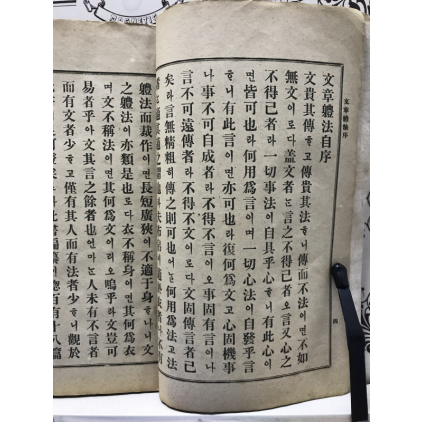 文章體法自序
文章體法序
文貴其傳ᄒᆞ고傳貴其法ᄒᆞ니傳而不法이면不如
無文이로다盖文者ᄂᆞᆫ言之不得已者오言又心之
不得已者라一切事法이自具乎心ᄒᆞ니有此心이
면皆可也라何用爲言이며一切心法이自發乎言
ᄒᆞ니有此言이면亦可也라復何爲文고心固機事
나事不可自成者라不得不言이오事固有言이나
言不可遠傳者라不得不文이로다文固傳言者已
矣라言無精粗히傳之則可也어ᄂᆞᆯ何用爲法고法
體法而裁作이면長短廣狹이不適于身ᄒᆞ나니文
之體法이亦類是也로다衣不稱身이면其何爲衣
며文不稱言이면其何爲文이리오嗚乎라文豈可
易者乎아文其言之餘者也언마ᄂᆞᆫ人未有不言者
而有文者少ᄒᆞ고僅有其人而有法者少ᄒᆞ니觀於
四